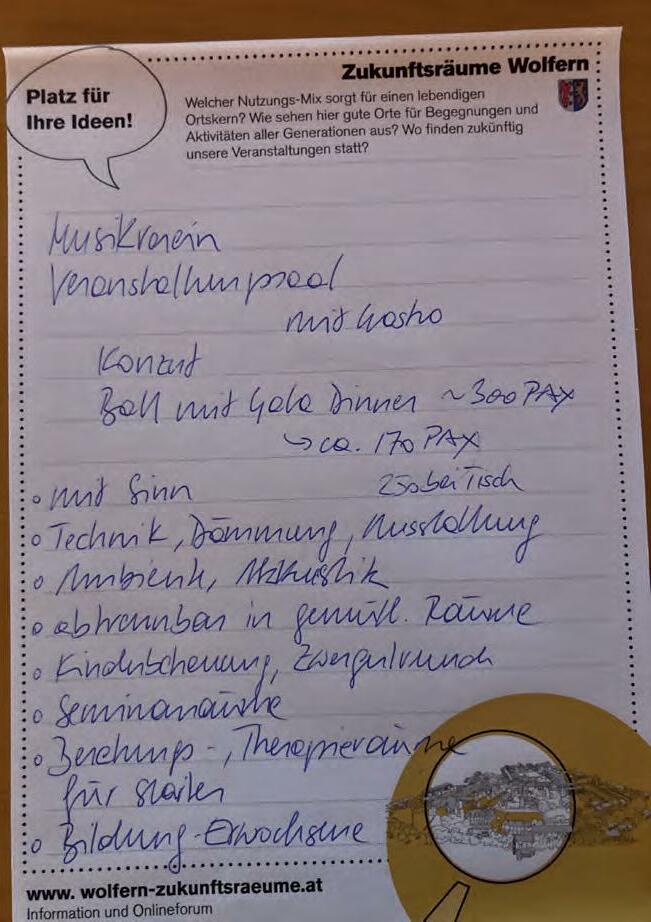 Platz für
Ihre Ideen!
Zukunftsräume Wolfern
Welcher Nutzungs-Mix sorgt für einen lebendigen
Ortskern? Wie sehen hier gute Orte für Begegnungen und
Aktivitäten aller Generationen aus? Wo finden zukünftig
unsere Veranstaltungen statt?
Musikverein
Veranstaltungssaal
mit Gastro
Konzert
Ball mit Gala Dinner ~300 PAX
↳ ca. 170 PAX
250 bei Tisch
• mit Sinn
• Technik, Dämmung, Ausstattung
• Ambiente, Akustik
• abtrennbar in gemütl. Räume
• Kinderbetreuung,
• Seminarräume
• Beziehungs-, Therapieräume
für
• Bildung-Erwachsene
www. wolfern-zukunftsraeume.at
Information und Onlineforum